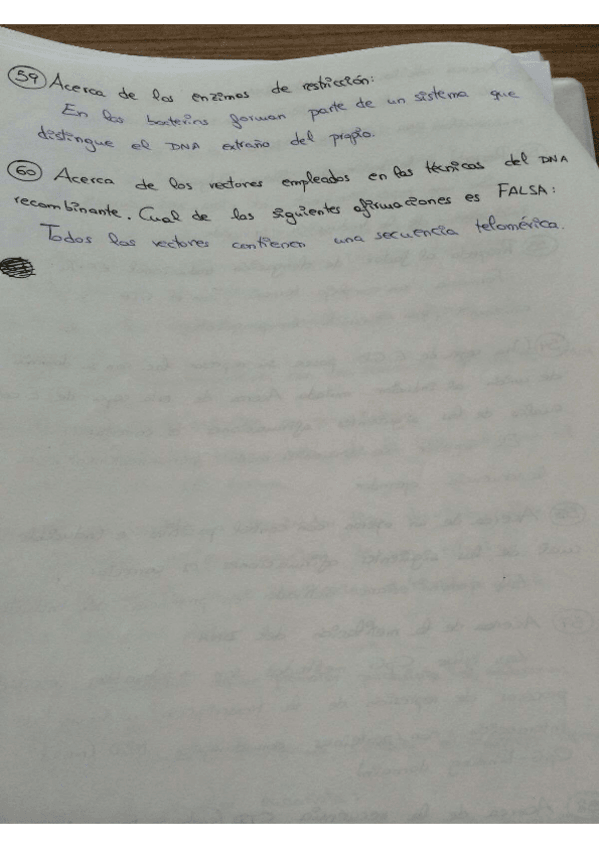 59 Acerca de las enzimas de restricción:
En las bacterias forman parte de un sistema que
distingue el DNA extraño del propio.
60 Acerca de los vectores empleados en las técnicas del DNA
recombinante. Cual de las siguientes afirmaciones es FALSA:
Todos los vectores contienen una secuencia telomérica.